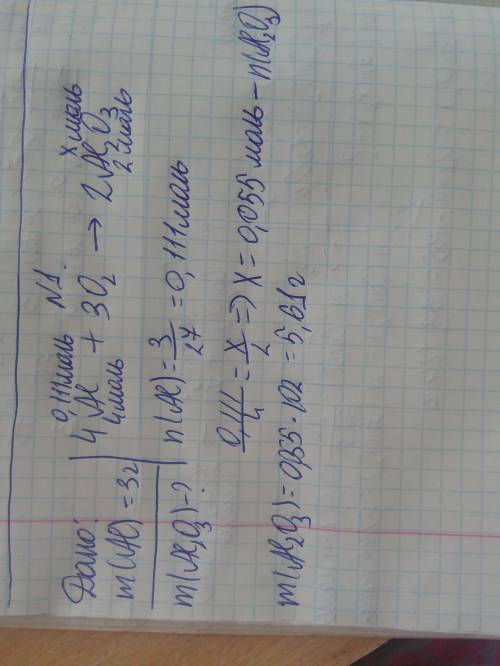 N1.
Дано:
m(Al) = 3г
m(Al2O3) - ?
0,111моль x моль
4Al + 3O2 → 2Al2O3
4моль 2моль
n(Al) = 3/27 = 0,111моль
0,111/4 = x/2 => x = 0,055 моль - n(Al2O3)
m(Al2O3) = 0,055 · 102 = 5,61г